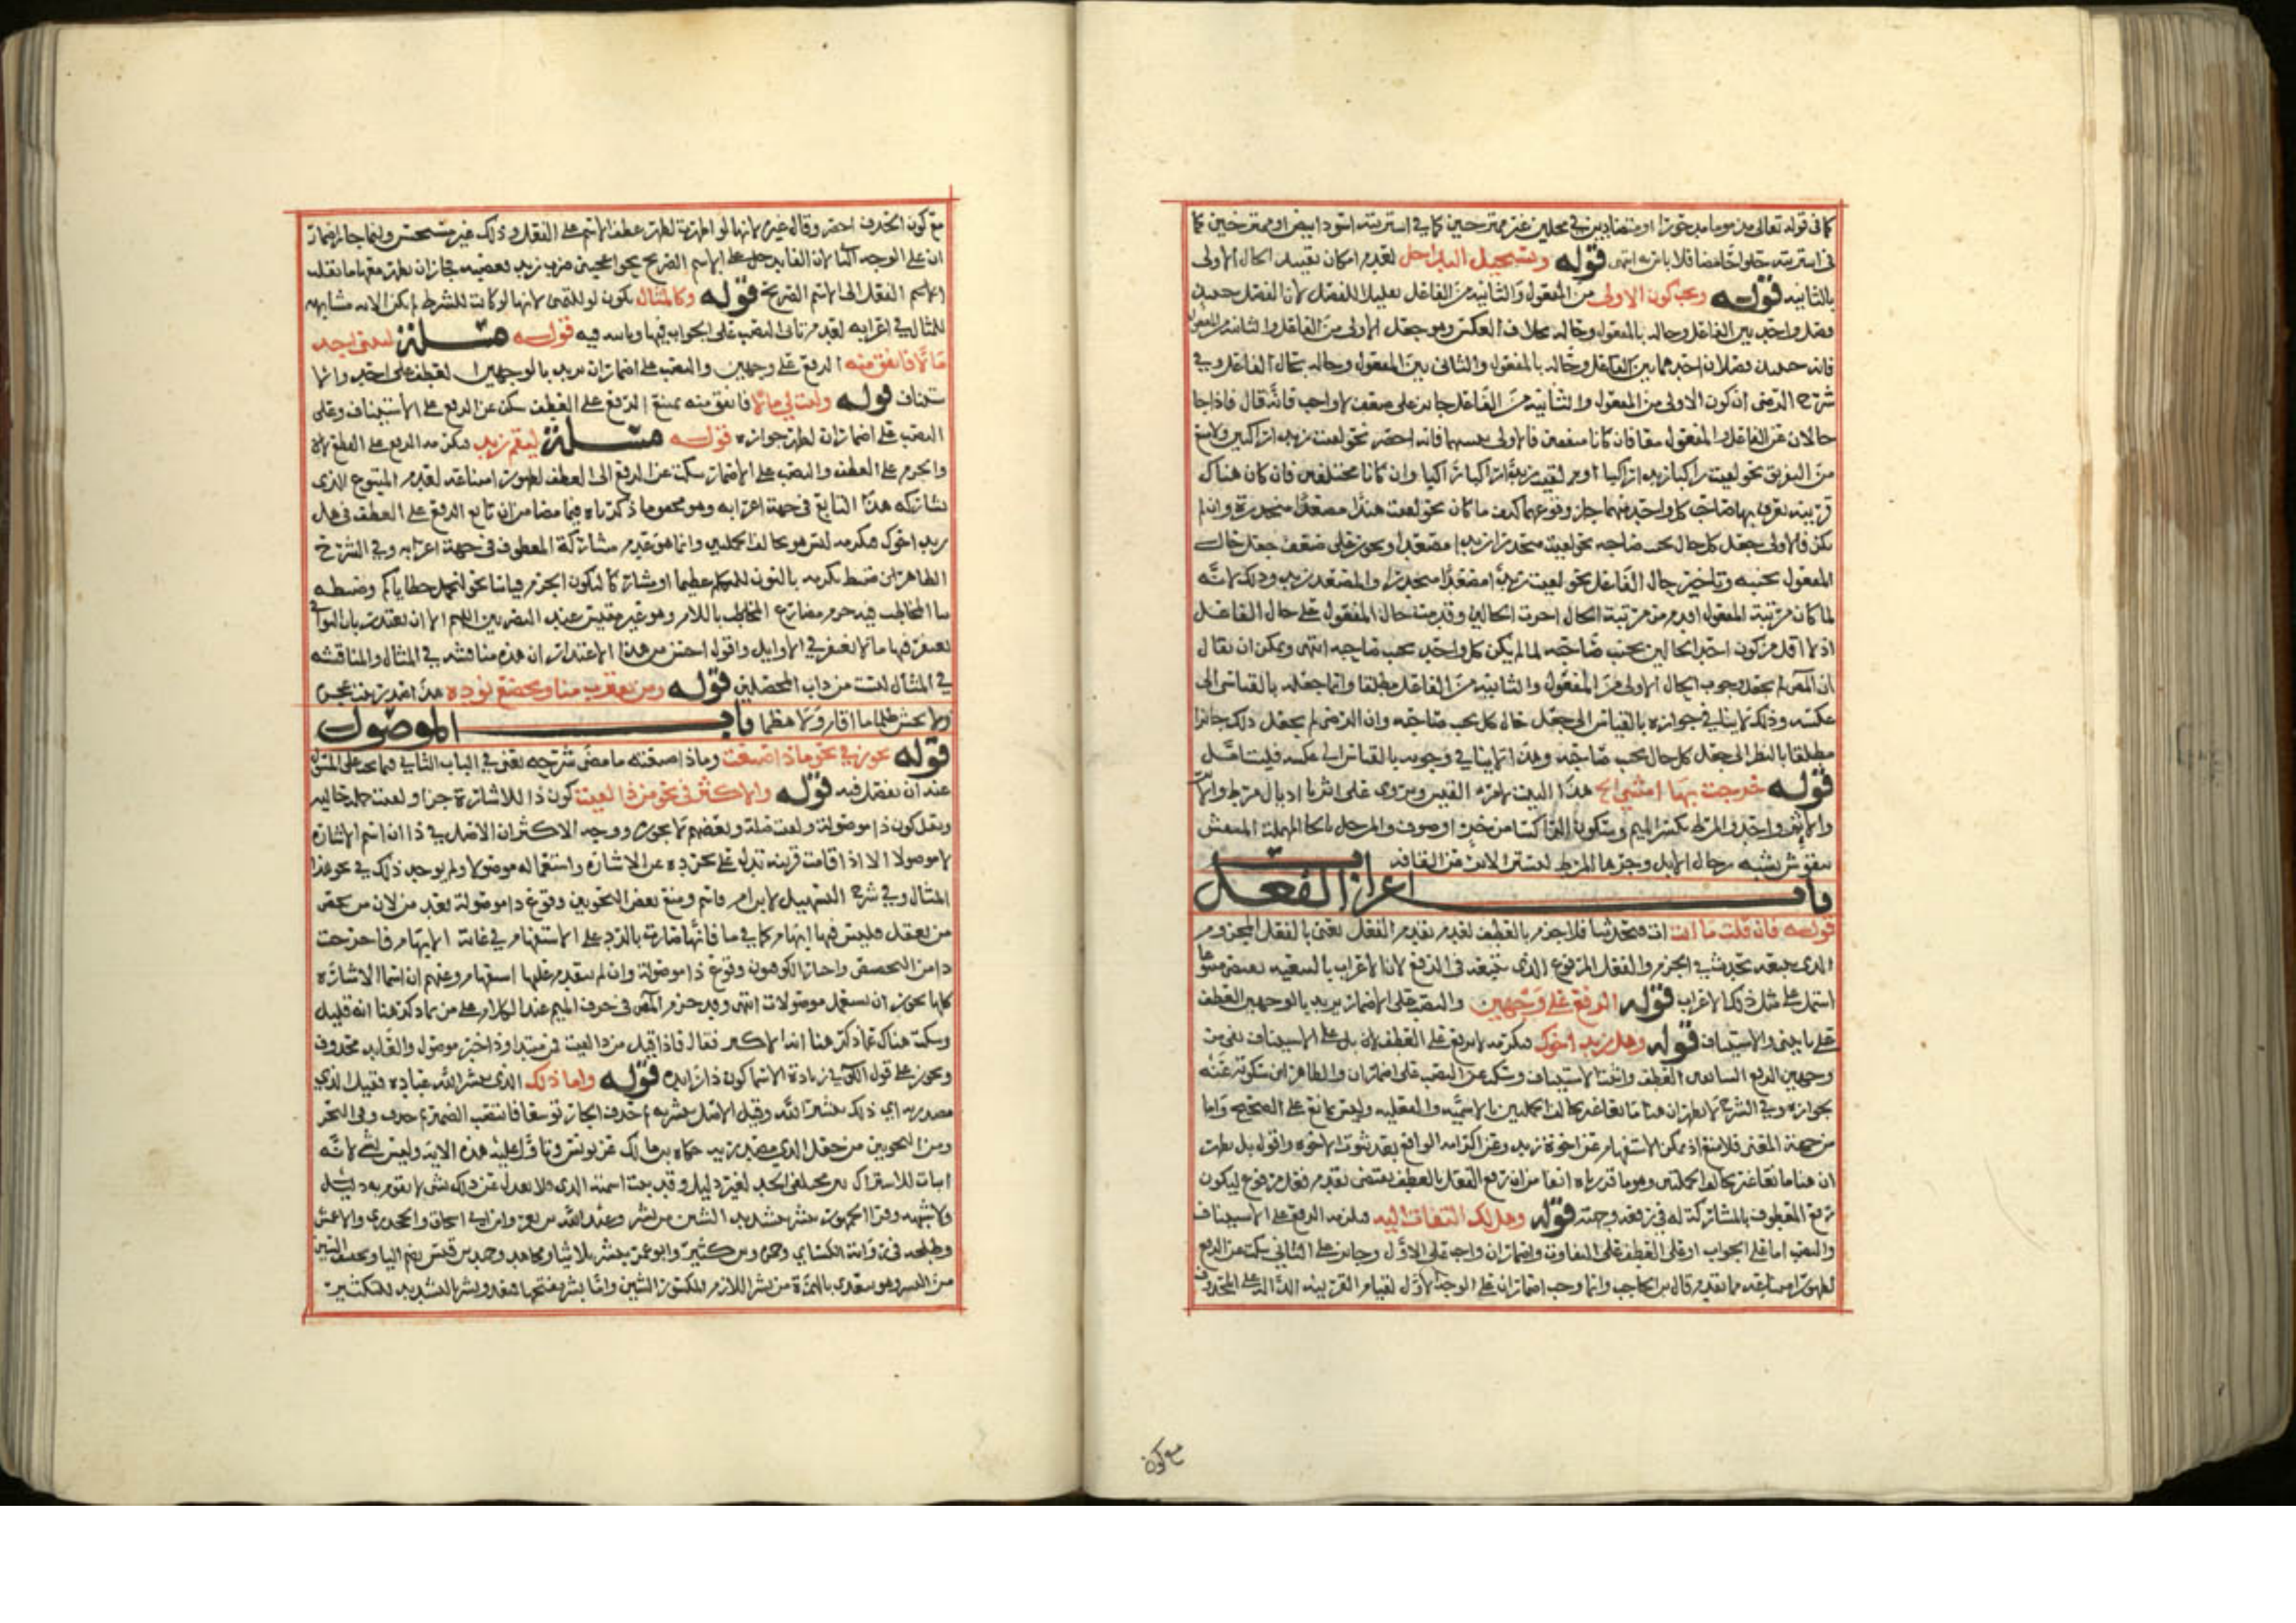 كما في قوله تعالى مذموما مدحورا او متضادين في محلين غير ممتزجين كما في اشتريته اسود ابيض او ممتزجين كما
في اشتريته حلوا حامضا فلا باس به انتهى قوله ويستحيل التداخل لعدم امكان تقييد الحال الاولى
بالثانية قوله ويجب كون الاولى من المفعول والثانية من الفاعل تقليلا للفصل لان الفصل حينئذ
فصل واحد بين الفاعل وحاله بالمفعول وحاله بخلاف العكس وهو جعل الاولى من الفاعل والثانية من المفعول
فانه حينئذ فصلان احدهما بين الفاعل وحاله بالمفعول والثاني بين المفعول وحاله بحال الفاعل وفي
شرح الرضى ان كون الاولى من المفعول والثانية من الفاعل جائز على ضعف لا واجب فانه قال فاذا جا
حالان عن الفاعل والمفعول معا فان كانا متفقين فالاولى جمعهما فانه احضر نحو لقيت زيدا راكبين ولا منع
من التفريق نحو لقيت راكبا زيدا راكبا او لقيت زيدا راكبا راكبا وان كانا مختلفين فان كان هناك
قرينة يعرف بها صاحب كل واحد منهما جاز وقوعهما كيف ما كان نحو لقيت هندا مصعدا منحدرة وان لم
يكن فالاولى جعل كل حال بجنب صاحبه نحو لقيت منحدرا زيدا مصعدا ويجوز على ضعف جعل حال
المفعول بجنبه وتاخير حال الفاعل نحو لقيت زيدا مصعدا منحدرا والمصعد زيد وذلك لانه
لما كان مرتبة المفعول اقدم من مرتبة الحال اخرت الحالين وقدمت حال المفعول على حال الفاعل
اذ لا اقل من كون احد الحالين بجنب صاحبه لما لم يكن كل واحد بجنب صاحبه انتهى ويمكن ان يقال
ان المص لم يجعل وجوب الحال الاولى من المفعول والثانية من الفاعل مطلقا وانما جعله بالقياس الى
عكسه وذلك لا ينافي جوازه بالقياس الى جعل حال كل بجنب صاحبه وان الرضى لم يجعل ذلك جائزا
مطلقا بالنظر الى جعل كل حال بجنب صاحبه وهذا لا ينافي وجوبه بالقياس الى عكسه فليتامل
قوله خرجت بها امشي الخ هذا البيت لامرء القيس ويروى على اثرنا اذيال مرط
واحد والمرط بكسر الميم وسكون الرا كسا من خز او صوف والمرحل بالحا المهملة المنقش
بنقوش تشبه رحال الابل وجرها المرط لتستر الاثر من القافة
باب اعراب الفعل
قوله فان قلت ما انت آت فتحدثنا فلا جزم بالعطف لعدم تقدم الفعل يعني بالفعل المجزوم
الذي يتبعه تحدث في الجزم والفعل المرفوع الذي يتبعه في الرفع لان الاعراب بالتبعية يقتضي متبوعا
اشتمل على مثل ذلك الاعراب قوله الرفع على وجهين والنصب على الاضمار يريد بالوجهين العطف
على تاتيني والاستيناف قوله وهل زيد اخوك فتكرمه لا يرفع على العطف بل على الاستيناف نفى من
وجهين الرفع السابقين العطف واثبت الاستيناف وسكت عن النصب على اضمار ان والظاهر ان سكوته عنه
بجوازه وفي الشرح لا يظهر ان هنا مانعا غير تخالف الجملتين بالاسمية والفعلية وليس بمانع على الصحيح واما
من جهة المعنى فلا منع اذ يمكن الاستفهام عن اخوة زيد وعن اكرامه الواقع بعد ثبوت الاخوة واقول بل يظهر
ان هنا مانعا غير تخالف الجملتين وهو ما قدرناه انفا من ان رفع الفعل بالعطف يقتضي تقدم فعل مرفوع ليكون
رفع المعطوف بالمشاركة له في رفعه وجهته قوله وهل لك التفات اليه فتكرمه الرفع على الاستيناف
والنصب اما على الجواب او على العطف على التفات واضمار ان واجب على الاول وجائز على الثاني سكت عن الرفع
لظهور امتناعه مما تقدم قال بن الحاجب وانما وجب اضمار ان على الوجه الاول لقيام القرينة الدالة على المحذوف
مع كون
مع كون الحذف اخصر وقال غيره لانها لو اظهرت لظهر عطف الاسم على الفعل وذلك غير مستحسن وانما جاز اضمار
ان على الوجه الثاني لان الفا يدخل على الاسم الصريح نحو اعجبني ضرب زيد فغضبه فجاز ان يظهر معها ما تقلب
الفعل الى الاسم الصريح قوله وكالمثال بكون لو للتمني لانها لو كانت للشرط لم تكن الاية مشابهة
للمثال في اعرابه لعدم تاتى النصب على الجواب فيها وتاتيه فيه قوله مسئلة ليتني اجد
مالا فانفق منه الرفع على وجهين والنصب على اضمار ان يريد بالوجهين العطف على اجد والا
ستيناف قوله وليت لي مالا فانفق منه يمتنع الرفع على العطف سكت عن الرفع على الاستيناف وعلى
النصب على اضمار ان لظهور جوازه قوله مسئلة ليقم زيد فنكرمه الرفع على القطع
والجزم على العطف والنصب على الاضمار سكت عن الرفع الى العطف لظهور امتناعه لعدم المتبوع الذي
يشاركه هذا التابع في جهة اعرابه وهو مفهوم ما ذكرناه فيما مضى من ان مانع الرفع على العطف في هل
زيد اخوك فتكرمه ليس هو تخالف الجملتين وانما هو عدم مشاركة المعطوف في جهة اعرابه وفي الشرح
الظاهر ان ضبط نكرمه بالنون للمتكلم عظيما او مشاركا ليكون الجزم قياسا نحو لنحمل خطاياكم وضبطه
بتا المخاطب فيه جزم مضارع المخاطب باللام وهو غير مقيس عند البصريين اللهم الا ان يعتذر بان الثواني
يغتفر فيها ما لا يغتفر في الاوايل واقول احسن من هذا الاعتذار ان هذه مناقشة في المثال والمناقشة
في المثال ليست من داب المحصلين قوله ومن يقترب منا ويخضع نؤوه
ولا يخش ظلما ما اقام ولا هضما باب الموصول
قوله يجوز في نحو ماذا صنعت وماذا صنعته ما مضى شرحه يعني في الباب الثاني
عند ان بفصل فيه قوله والاكثر في نحو من ذا لقيت كون ذا للاشارة خبرا ولقيت جملة حالية
ويقل كون ذا موصولة ولقيت صلة وبعضهم لا يجوزه ووجه الاكثر ان الاصل في ذا ان اسم الاشارة
لا موصولا الا اذا قامت قرينة تدل على تجرده عن الاشارة واستعماله موصولا ولم يوجد ذلك في نحو هذا
المثال وفي شرح التسهيل لابن ام قاسم ومنع بعض النحويين وقوع ذا موصولة بعد من لان من تخص
من يعقل فليس فيها ابهام كما في ما فانها صارت بالرد على الاستفهام في غاية الابهام فاخرجت
ذا من التخصيص واجاز الكوفيون وقوع ذا موصولة وان لم يتقدم عليها استفهام وعنهم ان اسما الاشارة
كلها يجوز ان تستعمل موصولات انتهى وقد جزم المص في حرف الميم عند الكلام على من بما ذكر هنا انه قليل
وسكت هناك عما ذكر هنا انه الاكثر فقال فاذا قيل من ذا لقيت فمن مبتدا وذا خبر موصول والعايد محذوف
ويجوز على قول الكوفي زيادة الاسما كون ذا زايدة قوله واما ذلك الذي يبشر الله عباده فقيل الذي
مصدرية اي ذلك تبشير الله وقيل الاصل يبشر به ثم حذف الجار توسعا فانتصب الضمير ثم حذف وفي البحر
ومن النحويين من جعل الذي مصدرية حكاه بن مالك عن يونس وتاول عليه هذه الاية وليس بشي لانه
اثبات للاشتراك بين مختلفي الحد لغير دليل وقد ثبتت اسمية الذي فلا يعدل عن ذلك بشي لا يقوم به دليل
ولا شبهة وقرا الجمهور يبشر بتشديد الشين من بشر وعبد الله بن يعمر وابن ابي اسحاق والجحدري والاعمش
وطلحة في رواية الكسائي وحمزة وبن كثير وابو عمرو يبشر ثلاثيا ومجاهد وحميد بن قيس بضم اليا وتخفيف الشين
من ابشر وهو معدى بالهمزة من بشر اللازم المكسور الشين واما بشر بفتحها فمتعد وبشر بالتشديد للتكثير